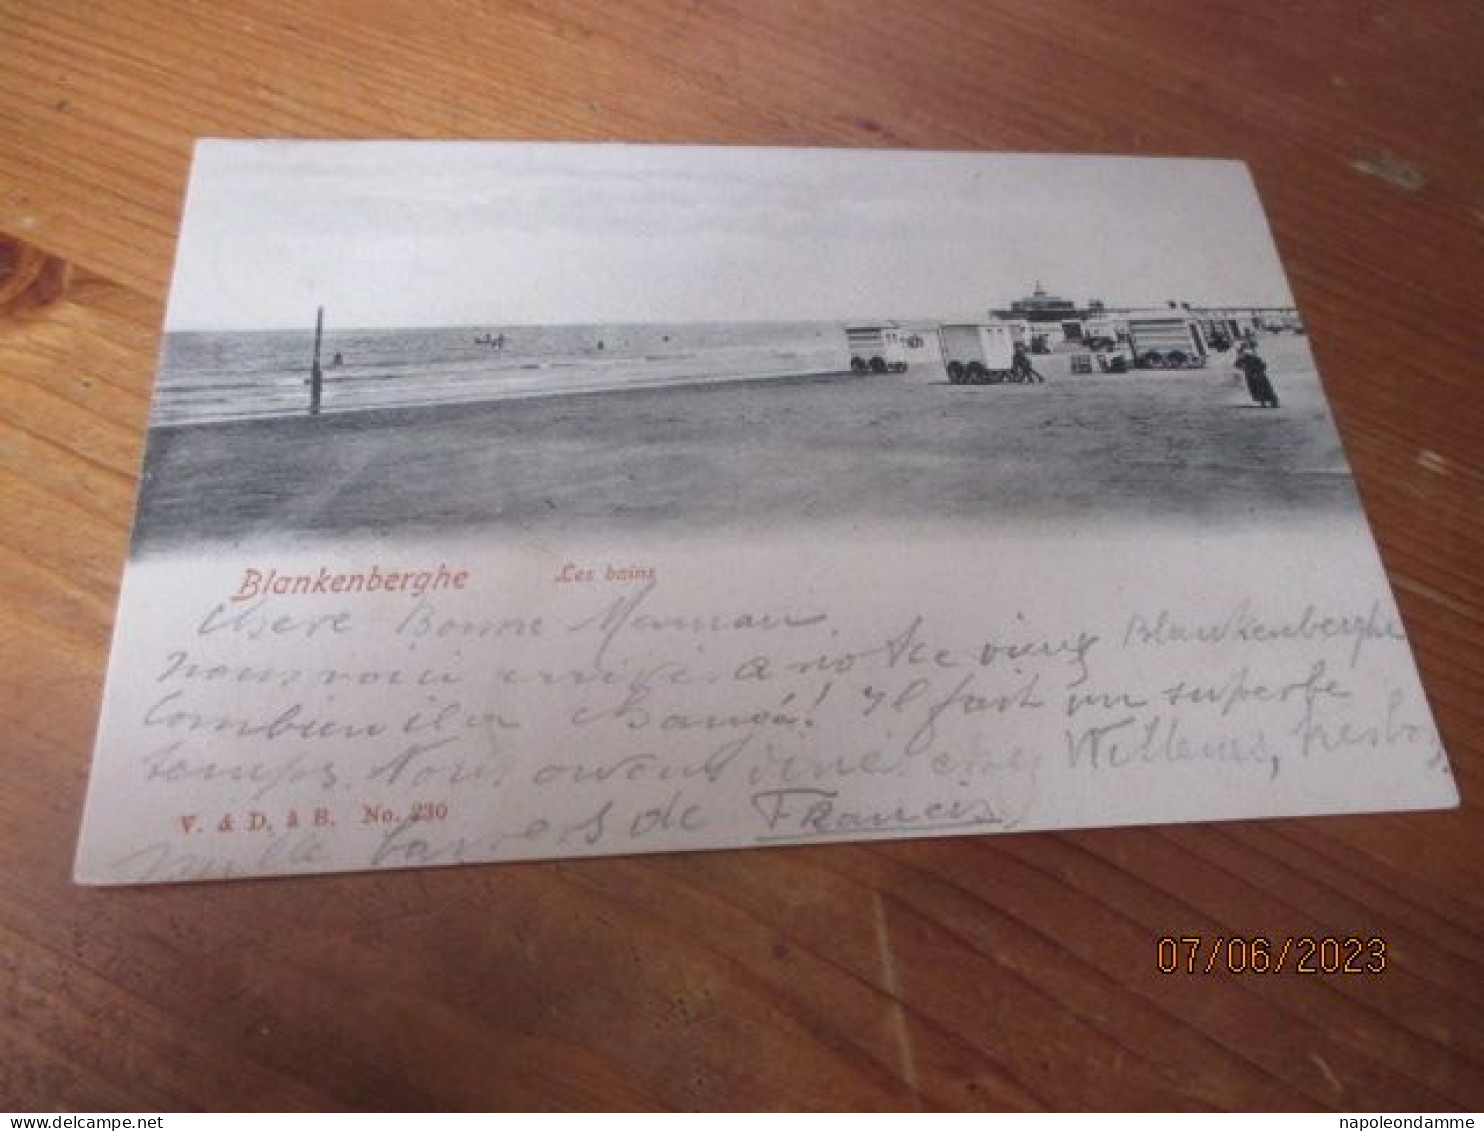 Blankenberghe Les bains
Chere Bonne Maman
nous voici arrivés a notre vieux Blankenberghe
Combien il a changé! Il fait un superbe
temps. Nous avons diné chez Willems, tres bon
V. & D. à B. No. 230
mille baisers de Francis
07/06/2023
napoleondamme